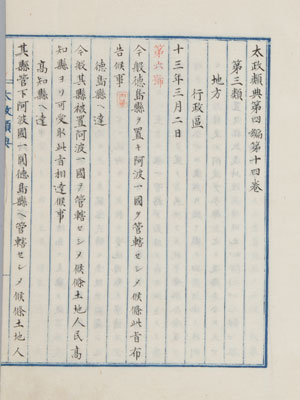 太政類典第四編第十四巻
第三類
地方
行政區
十三年三月二日
第六號
今般徳島縣ヲ置キ阿波一國ヲ管轄セシメ候條此旨布
告候事
徳島縣ヘ達
今般其縣被置阿波一國ヲ管轄セシメ候條土地人民高
知縣ヨリ可受取此旨相達候事
高知縣ヘ達
其縣管下阿波國一圓徳島縣ヘ管轄セシメ候條土地人
太政類典